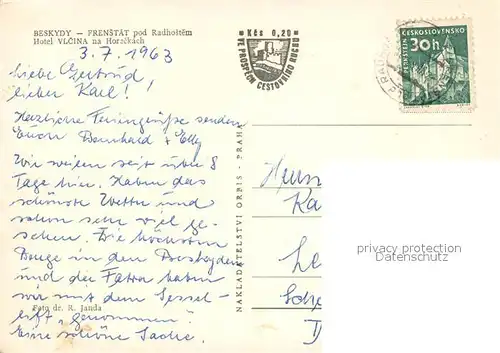 BESKYDY — FRENŠTÁT pod Radhoštěm
Hotel VLČINA na Horečkách
3.7.1963
Liebe Gertrud,
lieber Karl!
Herzliche Feriengrüße senden
Euch Bernhard + Elly
Wir weilen seit über 8
Tage hier. Haben das
schönste Wetter und
schon sehr viel ge-
sehen. Die höchsten
Berge in den Beskyden
und die Fatra haben
wir mit dem Sessel-
lift „genommen“.
Eine schöne Sache.
Foto dr. R. Janda
NAKLADATELSTVÍ ORBIS - PRAHA
Kčs 0,20
VE PROSPĚCH CESTOVNÍHO RUCHU
ČESKOSLOVENSKO
30h
PERNŠTEJN
Herrn
Ka
privacy protection
Datenschutz